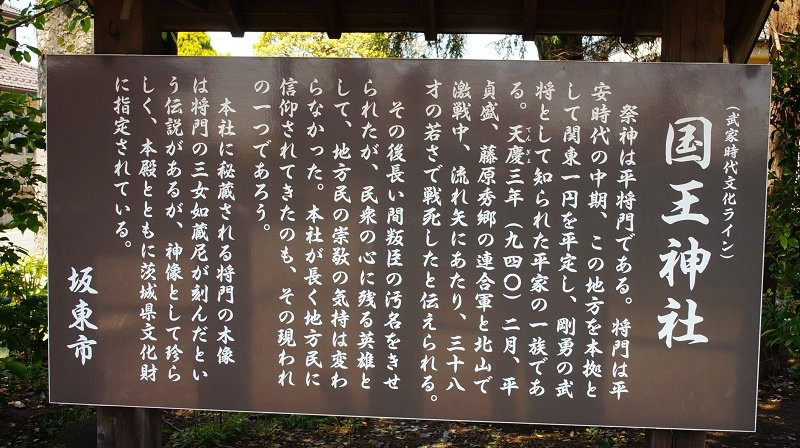 (武家時代文化ライン)
国王神社
祭神は平将門である。将門は平
安時代の中期、この地方を本拠と
して関東一円を平定し、剛勇の武
将として知られた平家の一族であ
る。天慶三年（九四〇）二月、平
てんぎょう
貞盛、藤原秀郷の連合軍と北山で
激戦中、流れ矢にあたり、三十八
才の若さで戦死したと伝えられる。
その後長い間叛臣の汚名をきせ
られたが、民衆の心に残る英雄と
して、地方民の崇敬の気持は変わ
らなかった。本社が長く地方民に
信仰されてきたのも、その現われ
の一つであろう。
本社に秘蔵される将門の木像
は将門の三女如蔵尼が刻んだとい
う伝説があるが、神像として珍ら
しく、本殿とともに茨城県文化財
に指定されている。
坂東市